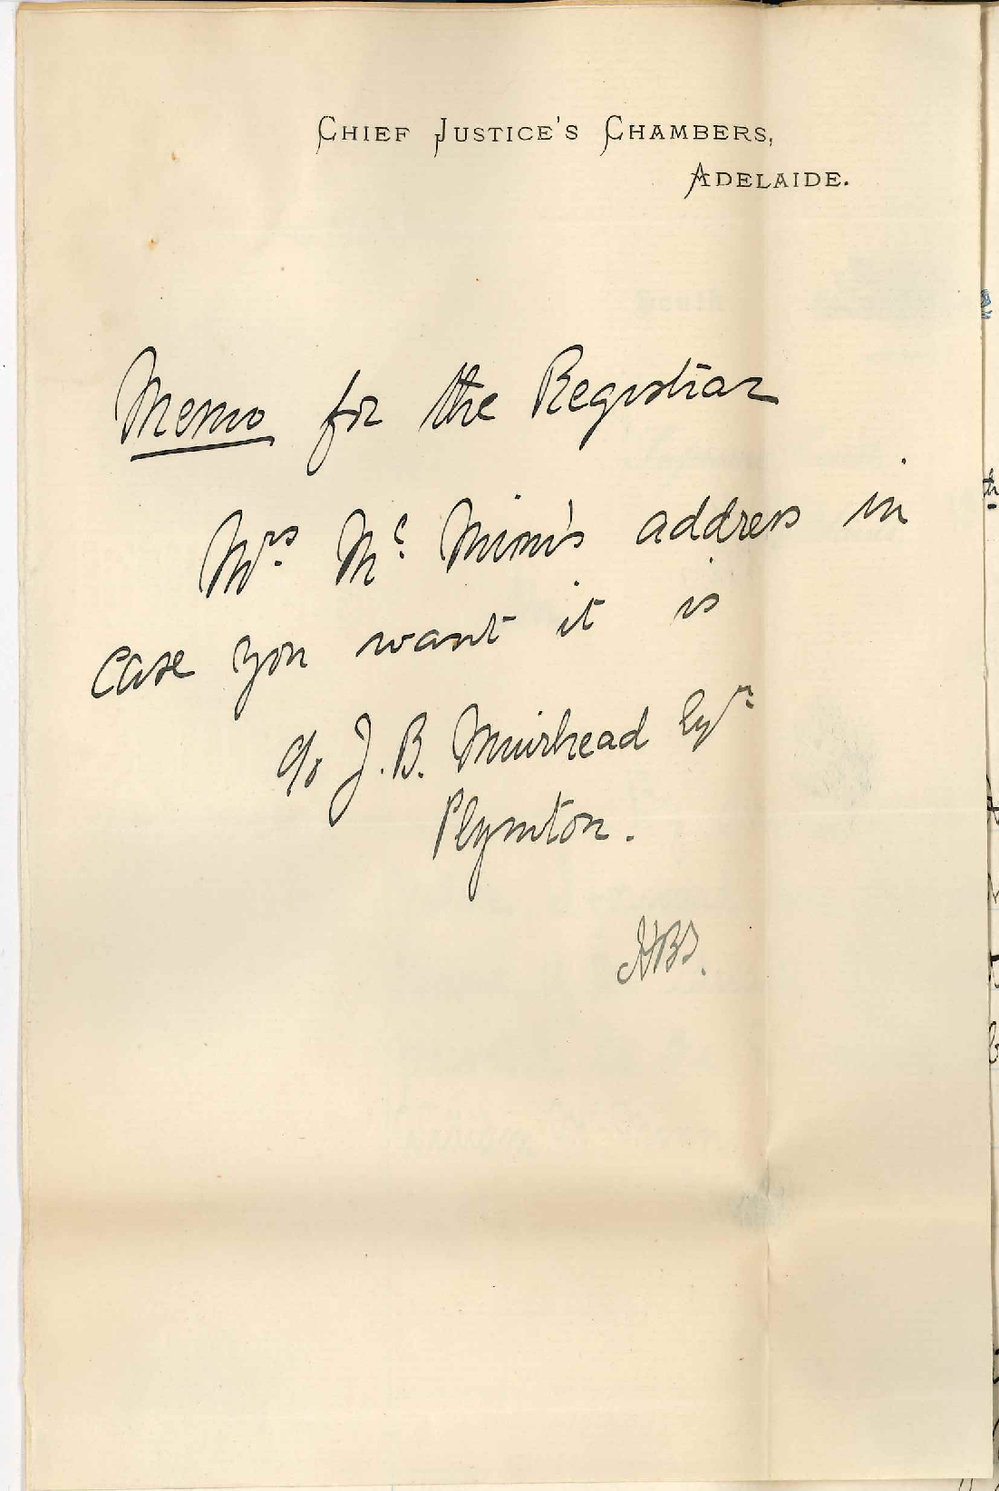 CHIEF JUSTICE'S CHAMBERS,
ADELAIDE.
Memo for the Registrar
Mrs. Mc. Mimi's address in
case you want it is
c/o J. B. Muirhead Esqr
Plymton.